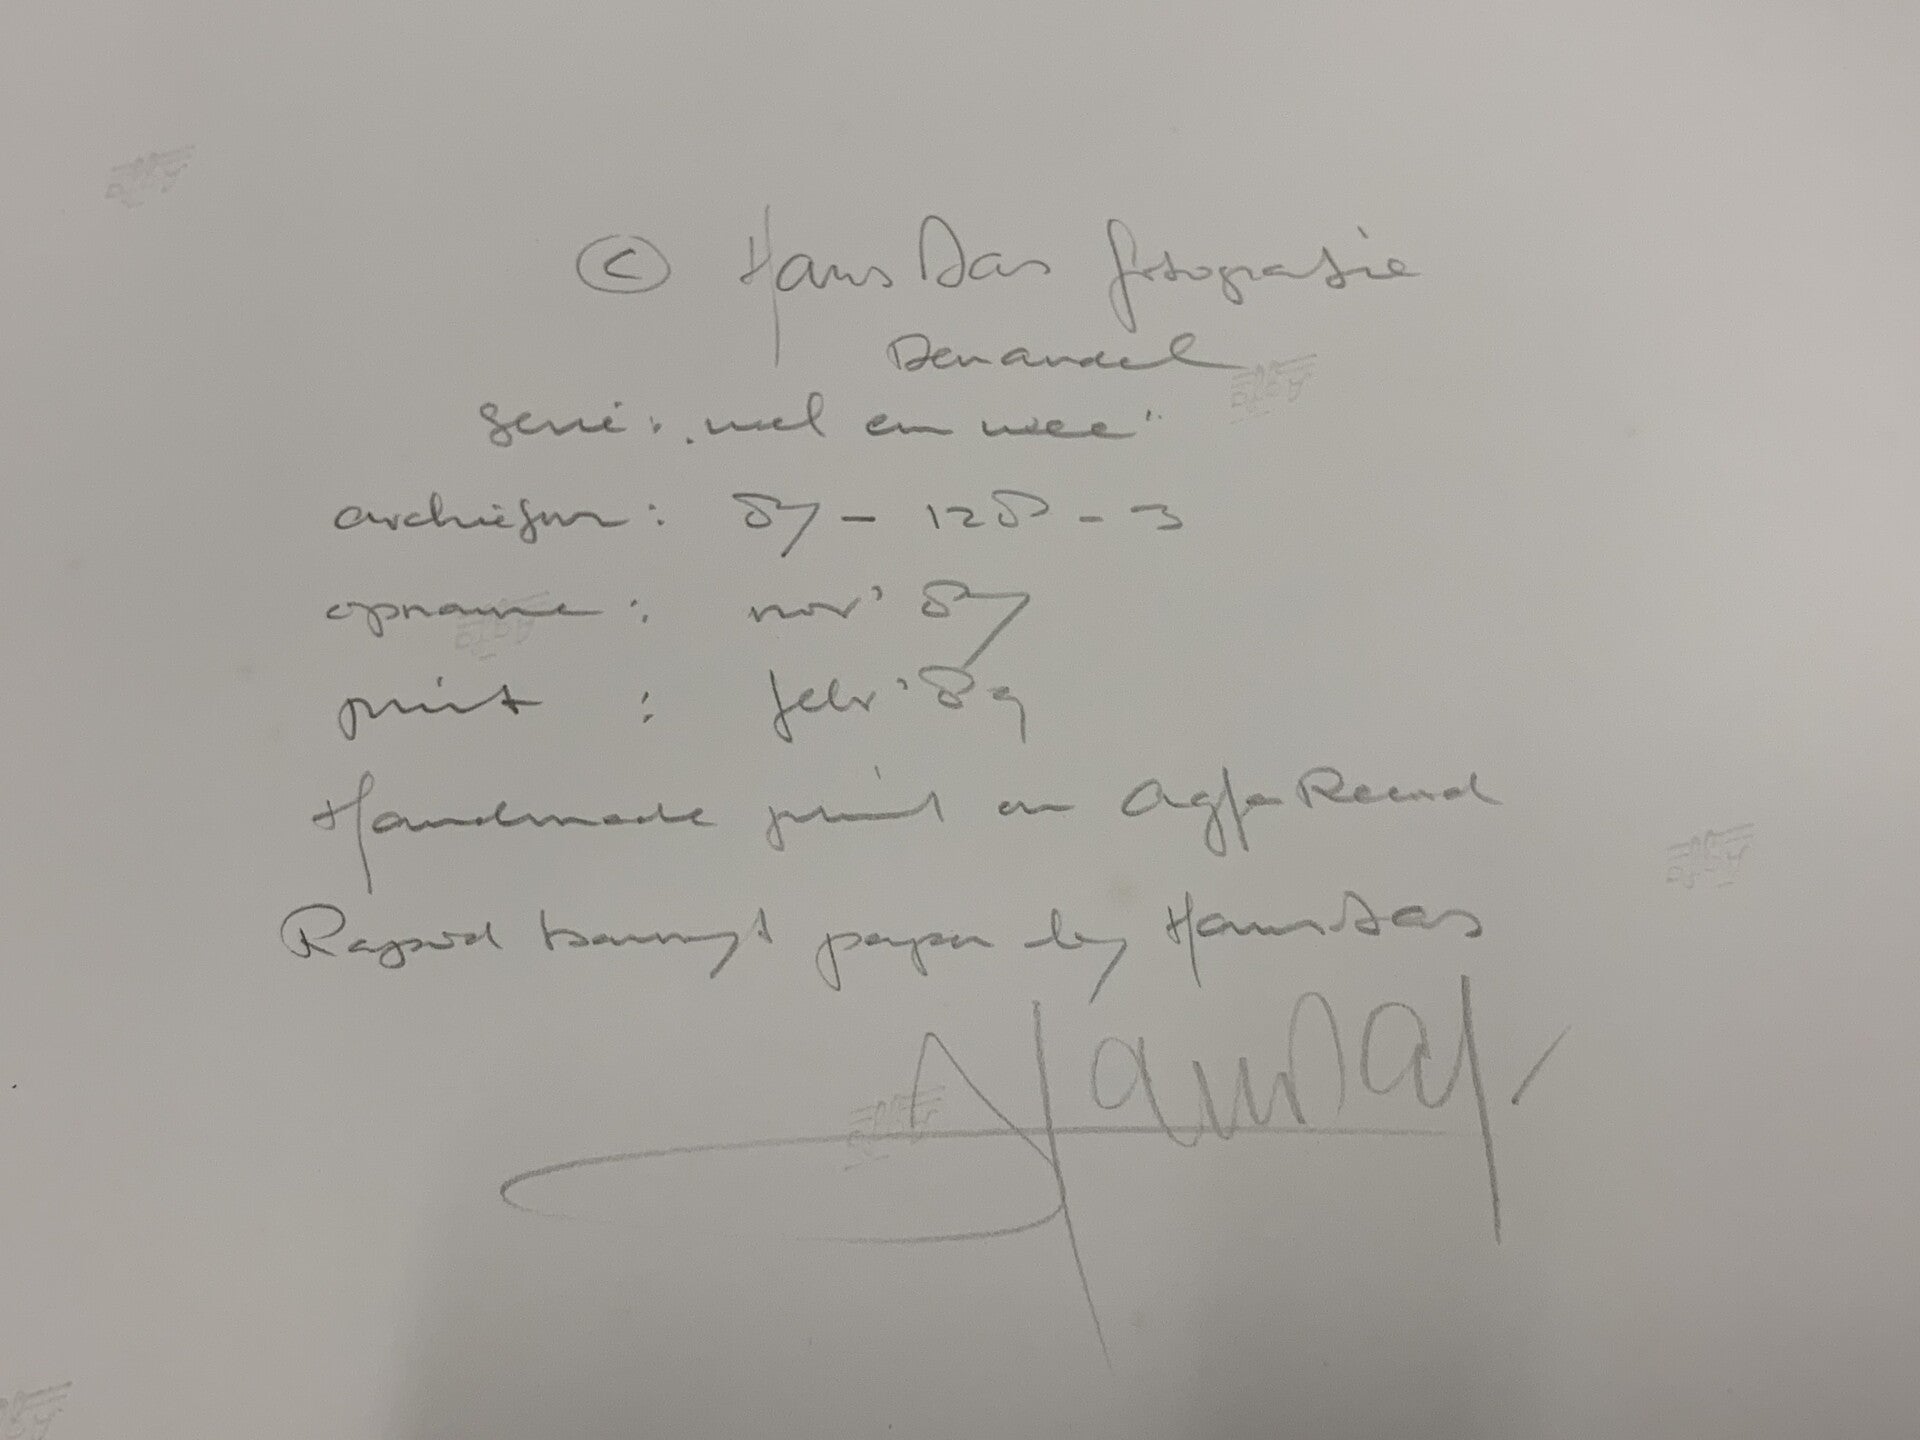 © Hans Das fotografie
Den andel
serie: „wel en wee"
archiefnr: 87-128-3
opname: nov' 87
print: febr '89
Handmade print on Agfa Record
Rapid baryt paper by Hans Das
Hans Das